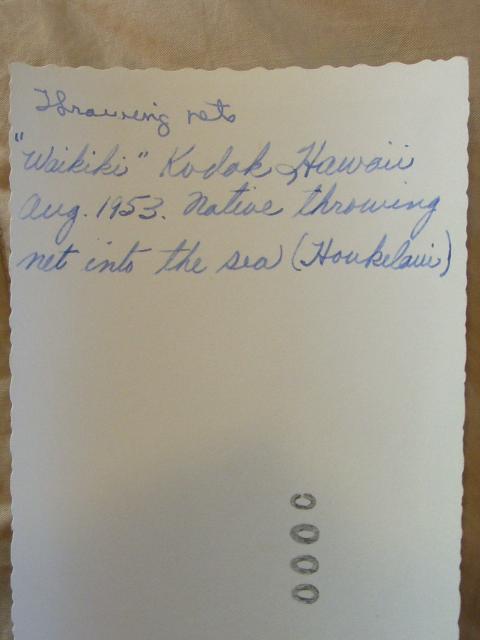 Throwing nets
"Waikiki" Kodak Hawaii
Aug. 1953. Native throwing
net into the sea (Houkelaui)
000C